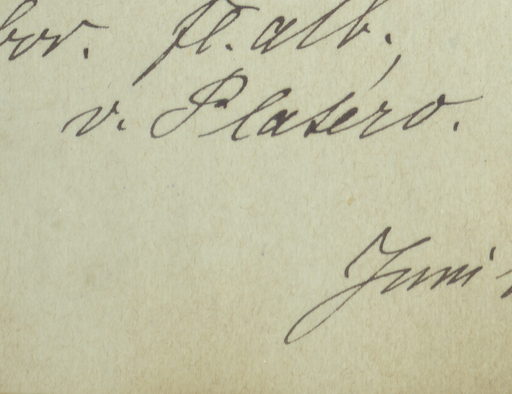 bor. fl. alb.,
v. Plaséro.
Juni